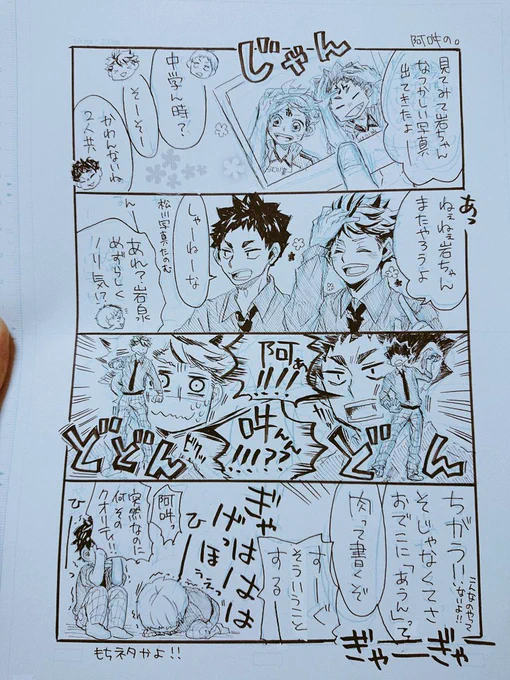 阿吽の。
見てみて岩ちゃん
なつかしい写真
出てきたよー
じゃん
中学ん時?
そーそー
かわんないね
2人共、
あっ
ねぇねぇ岩ちゃん
またやろうよ
しゃーねーな
松川写真たのむ
んー
あれ?岩泉
めずらしく
ノリ気!?
阿ぁ
!!!!
吽んん
!!!??
どん
どどん
ちがうー
こんなのやって
ないよ!!
そじゃなくてさ
おでこに「あうん」って
肉って書くぞ
すーぐ
そういうこと
する
ぎゃーぎゃー
ぎゃ
はははは
げっほ
阿吽っ
突然なのに
何その
クオリティ
ひー
ひー
もちネタかよ!!